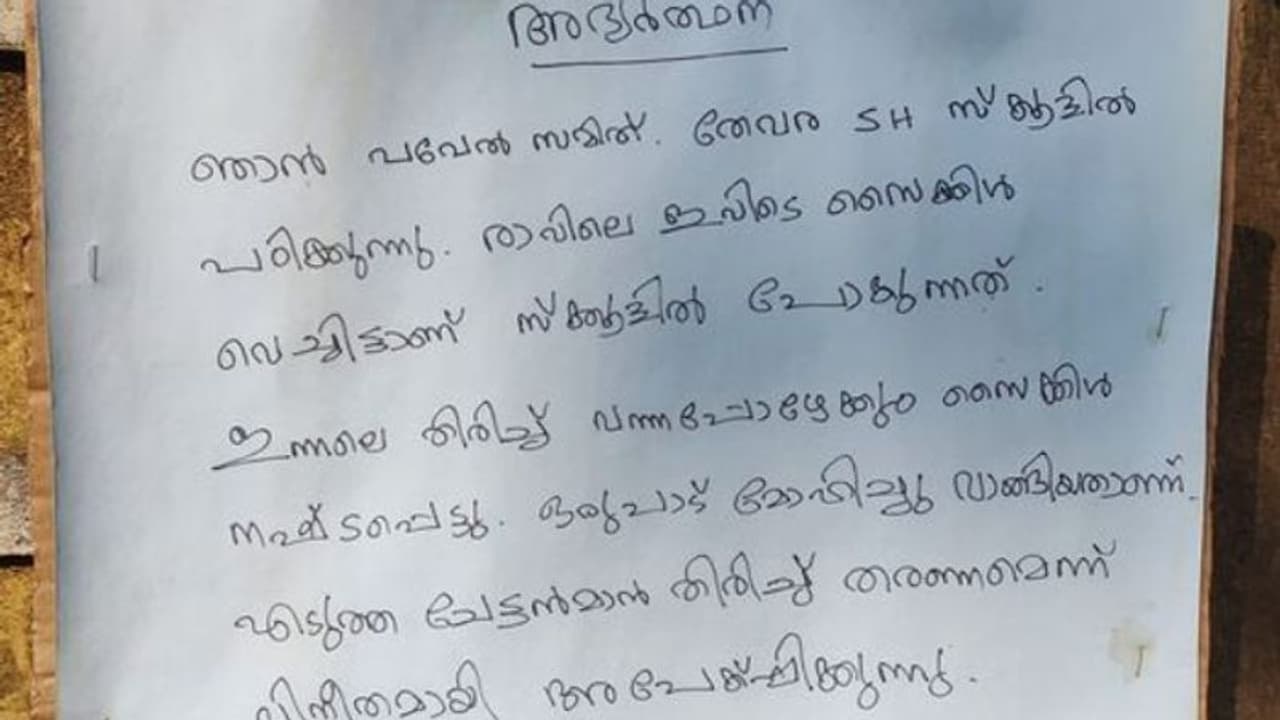 അഭ്യർത്ഥന
ഞാൻ പവേൽ സമിത്. തേവര SH സ്ക്കൂളിൽ
പഠിക്കുന്നു. രാവിലെ ഇവിടെ സൈക്കിൾ
വെച്ചിട്ടാണ് സ്ക്കൂളിൽ പോകുന്നത്.
ഇന്നലെ തിരിച്ച് വന്നപ്പോഴേക്കും സൈക്കിൾ
നഷ്ടപ്പെട്ടു. ഒരുപാട് മോഹിച്ചു വാങ്ങിയതാണ്.
എടുത്ത ചേട്ടൻമാൻ തിരിച്ച് തരണമെന്ന്
വിനീതമായി അപേക്ഷിക്കുന്നു.